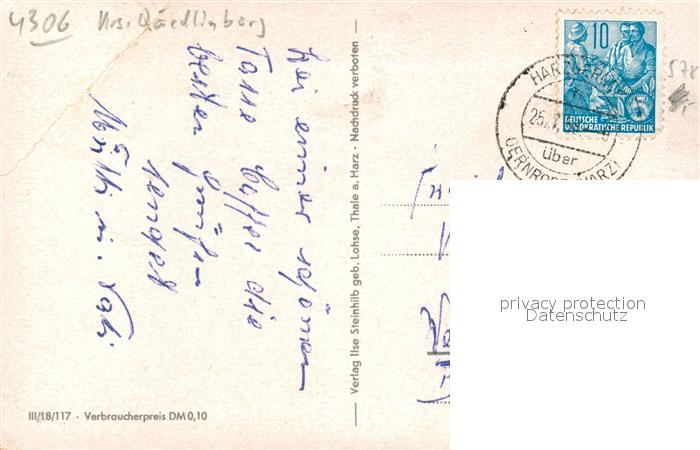 4306 Krs. Quedlinburg
bei einer schönen
Tasse Kaffee die
besten Grüße
sendet
u.
Verlag Ilse Steinhilb geb. Lohse, Thale a. Harz · Nachdruck verboten
III/18/117 · Verbraucherpreis DM 0,10
10
DEUTSCHE
DEMOKRATISCHE REPUBLIK
5
über
578
privacy protection
Datenschutz